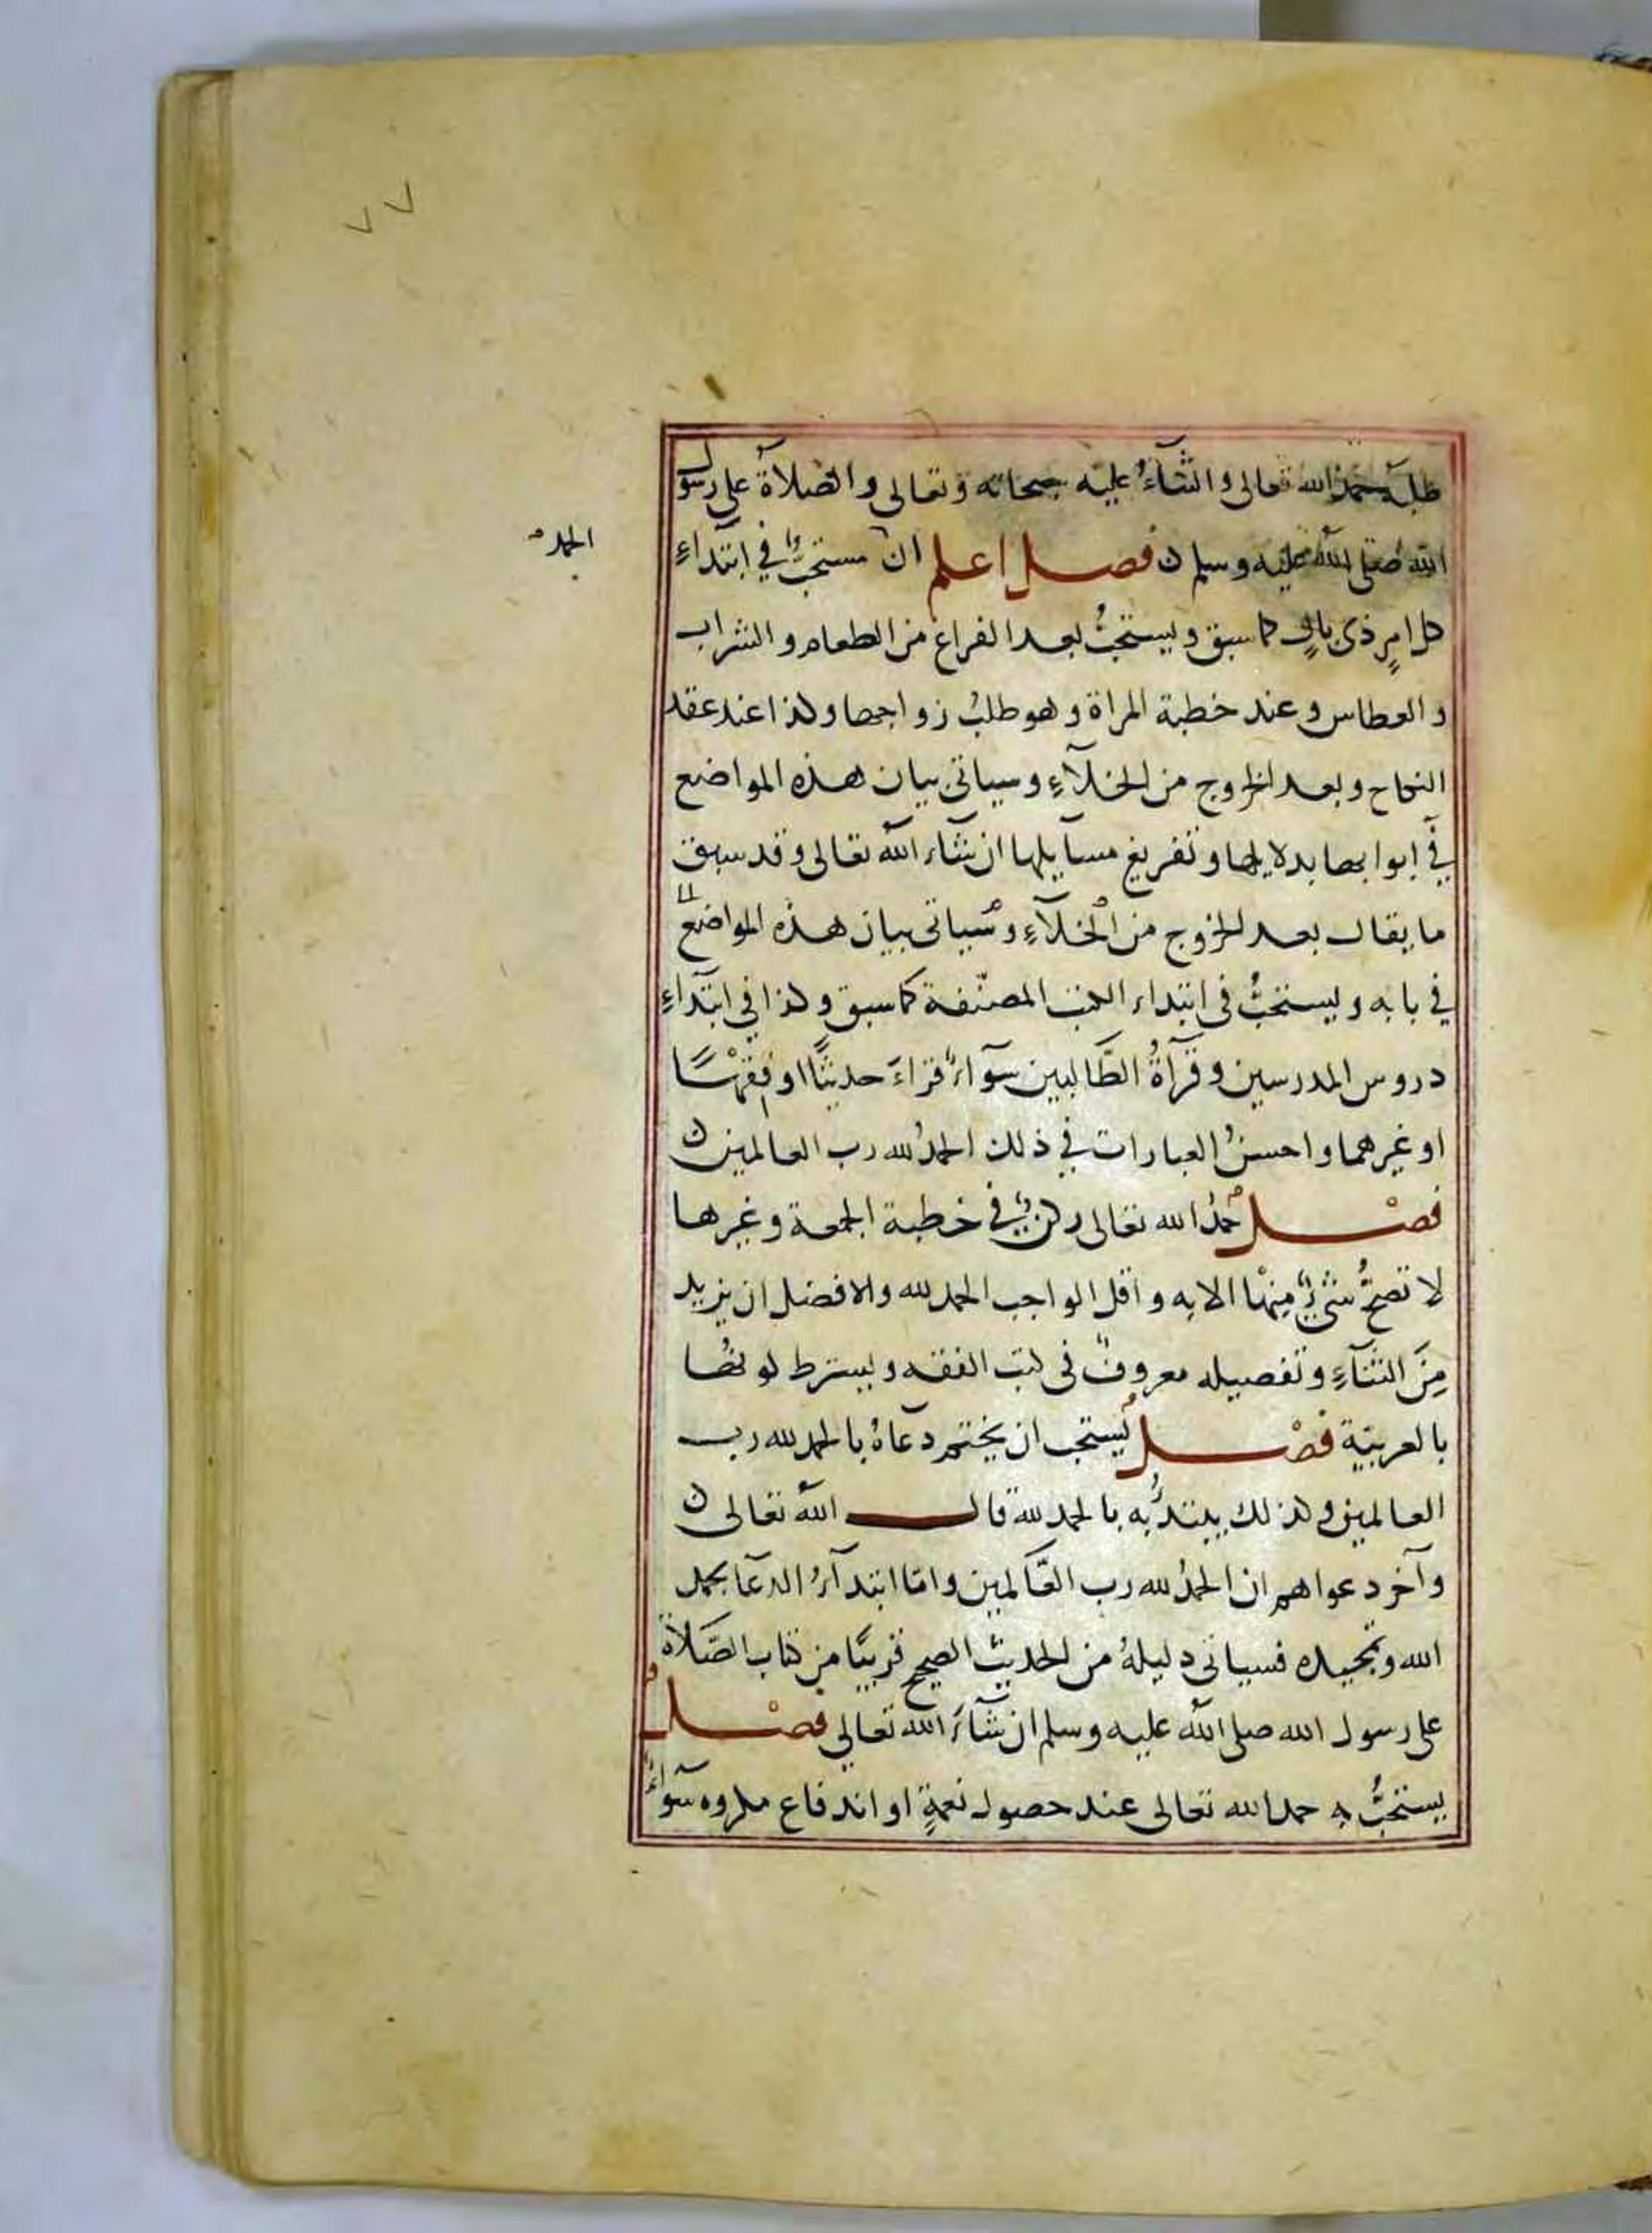 ٧٧
طلبه حمدُ الله تعالى والثنآءُ عليه سبحانه وتعالى والصلاةُ على رسول
الله صلى الله عليه وسلم ن فصل اعلم ان مستحبٌّ في ابتدآءِ
الحمد
كل امرٍ ذى بالٍ كما سبق ويستحبُّ بعد الفراغ من الطعام والشراب
والعطاس وعند خطبة المراة وهو طلبُ زواجها وكذا عند عقد
النكاح وبعد الخروج من الخلآءِ وسياتى بيان هذه المواضع
في ابوابها بدلايلها وتفريع مسآيلها ان شاء الله تعالى وقد سبق
ما يقال بعد الخروج من الخلآءِ وسياتى بيان هذه المواضع
في بابه ويستحبُّ فى ابتداء الكتب المصنّفة كما سبق وكذا في ابتدآءِ
دروس المدرسين وقرآةُ الطّالبين سوآءٌ قراءَ حديثًا او فقهًا
او غيرهما واحسنُ العبارات في ذلك الحمدُ لله رب العالمين ن
فصْل حمدُ الله تعالى ركنٌ في خطبة الجمعة وغيرها
لا تصحُّ شىءٌ منها الا به واقل الواجب الحمد لله والافضل ان يزيد
مِنَ الثنآءِ وتفصيله معروفٌ فى كتب الفقه ويشترط كونها
بالعربيّة فصْل يُستحب ان يختم دعاهُ بالحمد لله رب
العالمين وكذلك يبتدُّ به بالحمد لله قال الله تعالى ن
وآخر دعواهم ان الحمدُ لله رب العّالمين وامّا ابتدآءُ الدعآ بحمد
الله وتمجيده فسياتى دليلهُ من الحديث الصحيح قريبًا من كتاب الصّلاة
على رسول الله صلى الله عليه وسلم ان شآءَ الله تعالى فصْل
يستحبُّ به حمد الله تعالى عند حصول نعمةٍ او اندفاع مكروه سوآءٌ